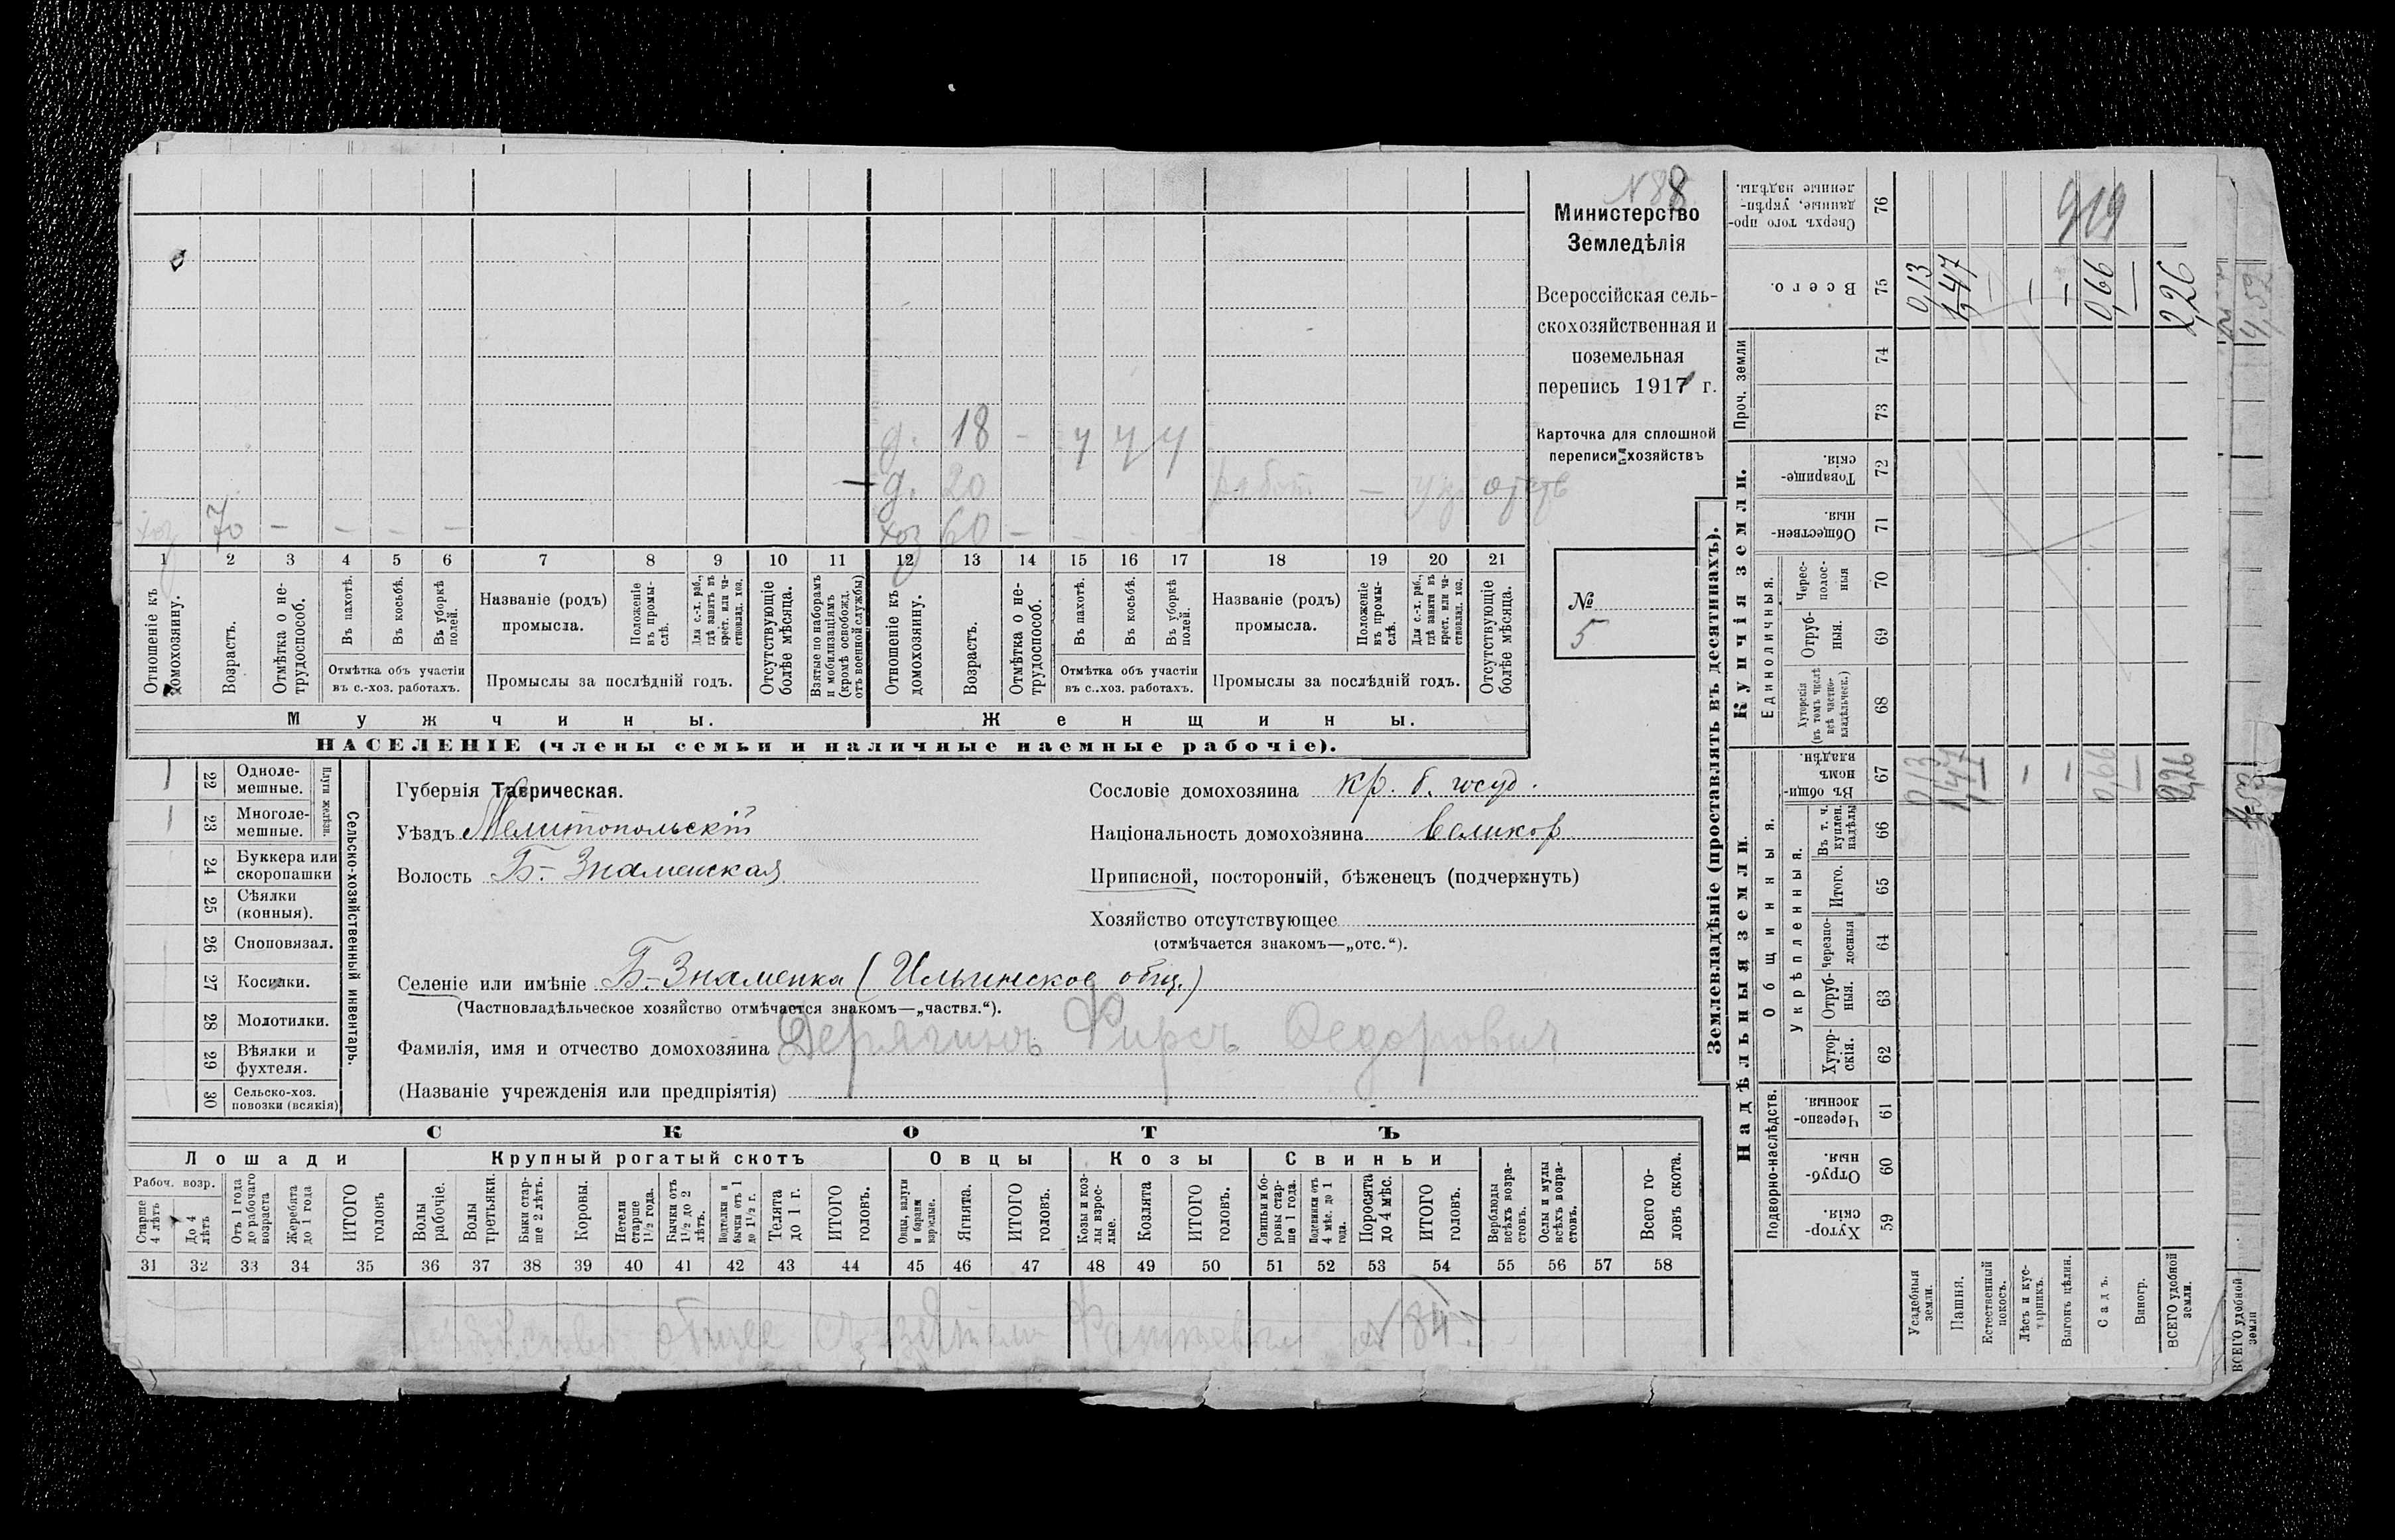 N 88
Министерство
Земледѣлія
Всероссійская сель-
скохозяйственная и
поземельная
перепись 1917 г.
Карточка для сплошной
переписи хозяйствъ
№
5
д. 18 - ч ч ч
д. 20 работ. -
70 - - - - -
хоз 60 - - - -
1 2 3 4 5 6 7 8 9 10 11 12 13 14 15 16 17 18 19 20 21
Отношеніе къ домохозяину.
Возрастъ.
Отмѣтка о не-трудоспособ.
Въ пахотѣ.
Въ косьбѣ.
Въ уборкѣ полей.
Отмѣтка объ участіи
въ с.-хоз. работахъ.
Названіе (родъ)
промысла.
Положеніе въ промы-слѣ.
Для с.-х. раб., гдѣ занятъ въ крест. или ча-стновлад. хоз.
Промыслы за послѣдній годъ.
Отсутствующіе болѣе мѣсяца.
Взятые по наборамъ и мобилизаціямъ (кромѣ освобожд. отъ военной службы)
Отношеніе къ домохозяину.
Возрастъ.
Отмѣтка о не-трудоспособ.
Въ пахотѣ.
Въ косьбѣ.
Въ уборкѣ полей.
Отмѣтка объ участіи
въ с.-хоз. работахъ.
Названіе (родъ)
промысла.
Положеніе въ промы-слѣ.
Для с.-х. раб., гдѣ занята въ крест. или ча-стновлад. хоз.
Промыслы за послѣдній годъ.
Отсутствующіе болѣе мѣсяца.
Мужчины. Женщины.
НАСЕЛЕНІЕ (члены семьи и наличные наемные рабочіе).
22 Одноле-мешные.
23 Многоле-мешные.
Плуги желѣзн.
24 Буккера или скоропашки
25 Сѣялки (конныя).
26 Сноповязал.
27 Косилки.
28 Молотилки.
29 Вѣялки и фухтеля.
30 Сельско-хоз. повозки (всякія)
Сельско-хозяйственный инвентарь.
Губернія Таврическая.
Уѣздъ Мелитопольскій
Волость Б.-Знаменская
Селеніе или имѣніе Б.-Знаменка (Ильинское общ.)
(Частновладѣльческое хозяйство отмѣчается знакомъ—„частвл.“).
Фамилія, имя и отчество домохозяина Дерягинъ Фирсъ Федорович
(Названіе учрежденія или предпріятія)
Сословіе домохозяина кр. б. госуд.
Національность домохозяина великор
Приписной, посторонній, бѣженецъ (подчеркнуть)
Хозяйство отсутствующее
(отмѣчается знакомъ—„отс.“).
СКОТЪ
Лошади Крупный рогатый скотъ Овцы Козы Свиньи
Рабоч. возр.
Старше 4 лѣтъ
До 4 лѣтъ
Отъ 1 года до рабочаго возраста
Жеребята до 1 года
ИТОГО головъ
Волы рабочіе.
Волы третьяки.
Быки стар-ше 2 лѣтъ.
Коровы.
Нетели старше 1½ года.
Бычки отъ 1½ до 2 лѣтъ.
Подтелки и бычки отъ 1 до 1½ г.
Телята до 1 г.
ИТОГО головъ.
Овцы, валухи и бараны взрослые.
Ягнята.
ИТОГО головъ.
Козы и коз-лы взрос-лые.
Козлята
ИТОГО головъ.
Свиньи и бо-ровы стар-ше 1 года.
Подсвинки отъ 4 мѣс. до 1 года.
Поросята до 4 мѣс.
ИТОГО головъ.
Верблюды всѣхъ возра-стовъ.
Ослы и мулы всѣхъ возра-стовъ.
Всего го-ловъ скота.
31 32 33 34 35 36 37 38 39 40 41 42 43 44 45 46 47 48 49 50 51 52 53 54 55 56 57 58
общее съ зятем
Землевладѣніе (проставлять въ десятинахъ).
Надѣльныя земли. Купчія земли.
Подворно-наслѣдств.
Общинныя.
Укрѣпленныя.
Единоличныя.
Проч. земли
59 Хутор-скія.
60 Отруб-ныя.
61 Черезпо-лосныя.
62 Хутор-скія.
63 Отруб-ныя.
64 Черезпо-лосныя
65 Итого.
66 Въ т. ч. куплен. надѣлы
67 Въ общин-номъ владѣн.
68 Хуторскія (въ томъ числѣ всѣ частно-владѣльческ.)
69 Отруб-ныя.
70 Черес-полос-ныя
71 Обществен-ныя.
72 Товарище-скія.
73
74
75 Всего.
76 Сверхъ того про-данные, укрѣп-ленные надѣлы.
Усадебныя земли. 0,13 0,13
Пашня. 1,47 1,47
Естественный покосъ. — —
Лѣсъ и кус-тарникъ. — —
Выгонъ цѣлин. — —
Садъ. 0,66 0,66
Виногр. — —
ВСЕГО удобной земли. 2,26 2,26
919
4,52
ВСЕГО удобной земли